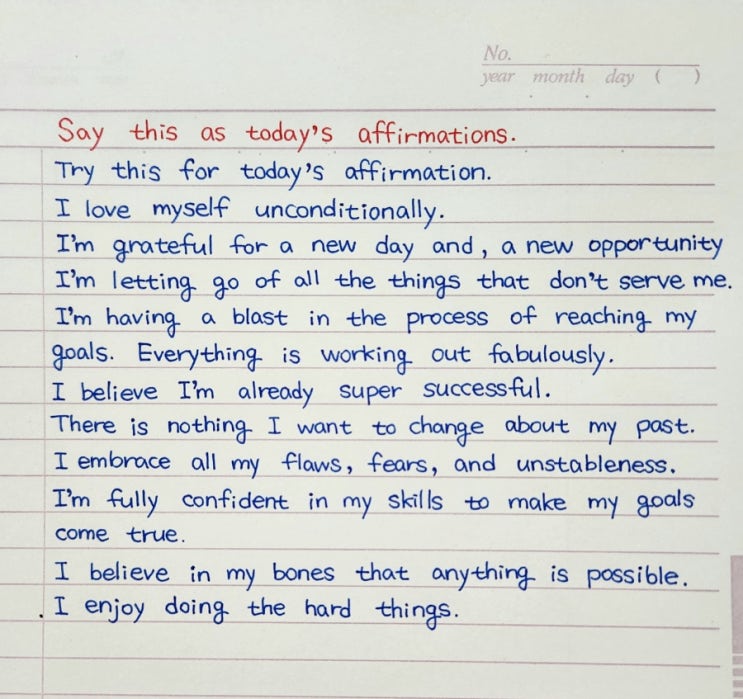 No.
year month day ( )
Say this as today's affirmations.
Try this for today's affirmation.
I love myself unconditionally.
I'm grateful for a new day and, a new opportunity
I'm letting go of all the things that don't serve me.
I'm having a blast in the process of reaching my
goals. Everything is working out fabulously.
I believe I'm already super successful.
There is nothing I want to change about my past.
I embrace all my flaws, fears, and unstableness.
I'm fully confident in my skills to make my goals
come true.
I believe in my bones that anything is possible.
I enjoy doing the hard things.